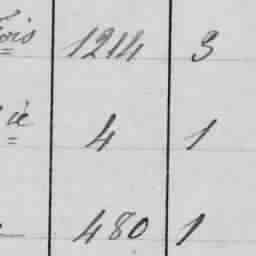 fois 1214 3
ie 4 1
480 1